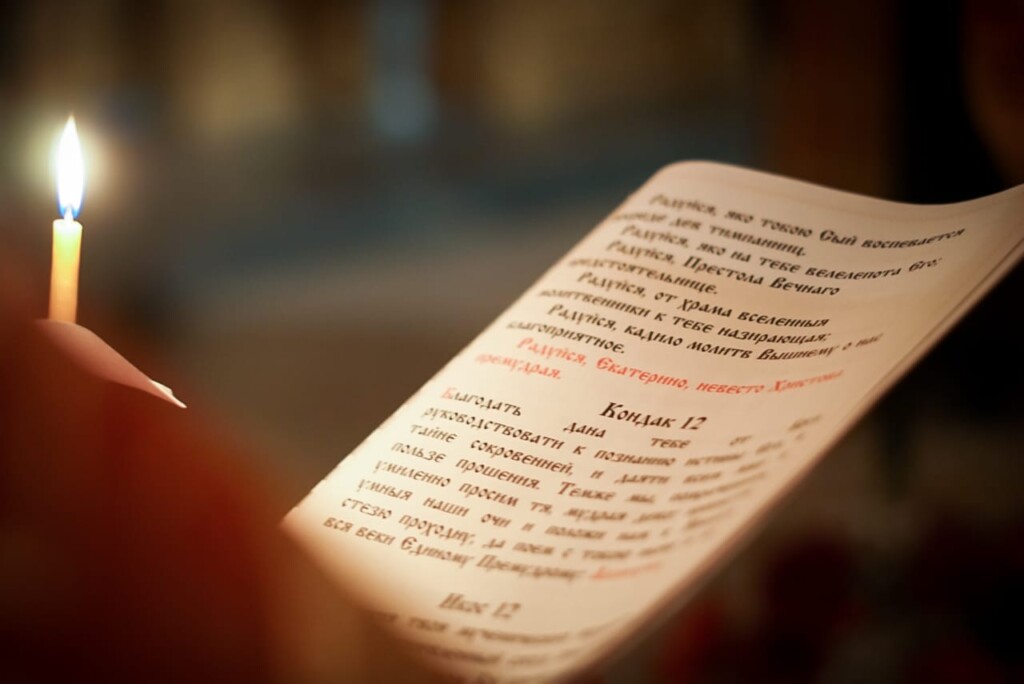 Радуйся, яко тобою Сый воспевается
дев тимпанниц.
Радуйся, яко на тебе велелепота Его;
Радуйся, Престола Вечнаго
предстоятельнице.
Радуйся, от храма вселенныя
молитвенники к тебе назирающая;
Радуйся, кадило молитв Вышнему о нас
благоприятное.
Радуйся, Екатерино, невесто Христова
премудрая.
Кондак 12
Благодать дана тебе от
руководствовати к познанию истины
тайне сокровенней, и даяти всем
пользе прошения. Темже мы,
умиленно просим тя, мудрая дево
умныя наши очи и положи нам
стезю проходну, да поем с тобою
вся веки Единому Премудрому:
Икос 12
твоя